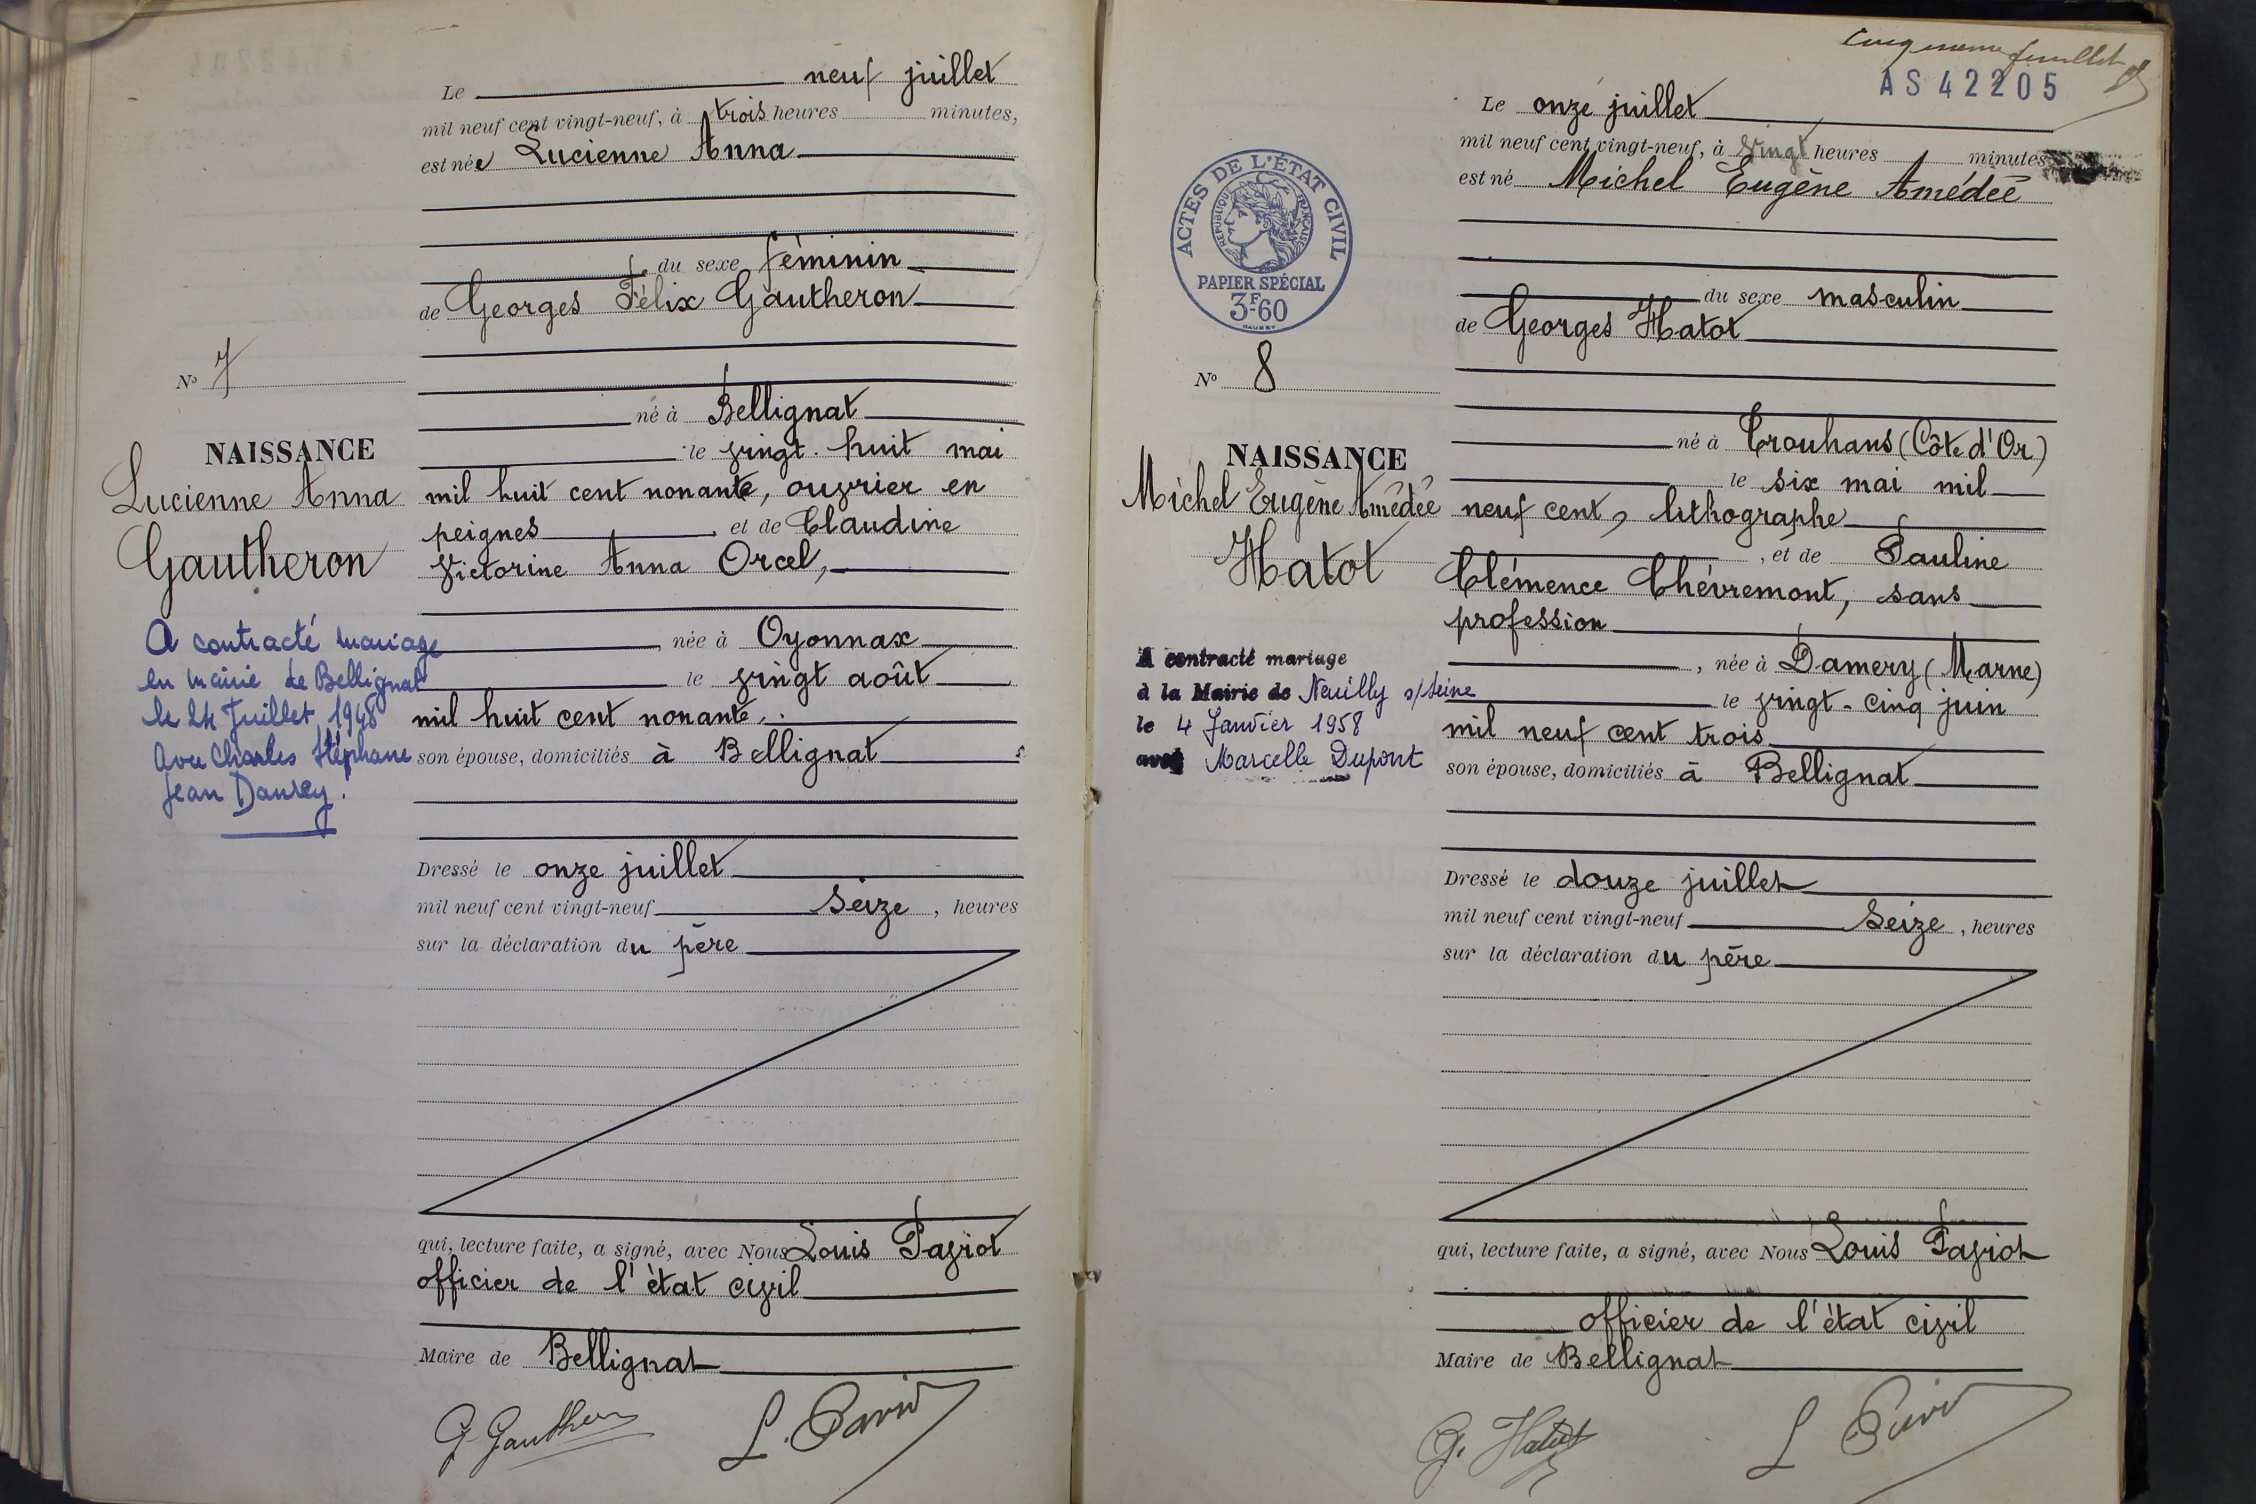 Le neuf juillet
mil neuf cent vingt-neuf, à trois heures minutes,
est née Lucienne Anna
du sexe féminin
de Georges Félix Gautheron
N° 7
né à Bellignat
le vingt-huit mai
NAISSANCE
Lucienne Anna
Gautheron
mil huit cent nonante, ouvrier en
peignes et de Claudine
Victorine Anna Orcel,
née à Oyonnax
le vingt août
mil huit cent nonante,
son épouse, domiciliés à Bellignat
A contracté mariage
en mairie de Bellignat
le 24 Juillet 1948
avec Charles Stéphane
Jean
Dressé le onze juillet
mil neuf cent vingt-neuf seize, heures
sur la déclaration du père
qui, lecture faite, a signé, avec Nous Louis Paviot
officier de l'état civil
Maire de Bellignat
feuillet
AS 42205
Le onze juillet
mil neuf cent vingt-neuf, à vingt heures minutes
est né Michel Eugène Amédée
ACTES DE L'ÉTAT CIVIL
RÉPUBLIQUE FRANÇAISE
PAPIER SPÉCIAL
3F-60
du sexe masculin
de Georges Hatot
N° 8
né à Trouhans (Côte d'Or)
NAISSANCE
Michel Eugène Amédée
Hatot
le six mai mil
neuf cent, lithographe
, et de Pauline
Clémence Chévremont, sans
profession
, née à Damery (Marne)
le vingt-cinq juin
mil neuf cent trois
son épouse, domiciliés à Bellignat
A contracté mariage
à la Mairie de Neuilly s/Seine
le 4 Janvier 1958
avec Marcelle Dupont
Dressé le douze juillet
mil neuf cent vingt-neuf Seize, heures
sur la déclaration du père
qui, lecture faite, a signé, avec Nous Louis Paviot
officier de l'état civil
Maire de Bellignat
G. Hatot